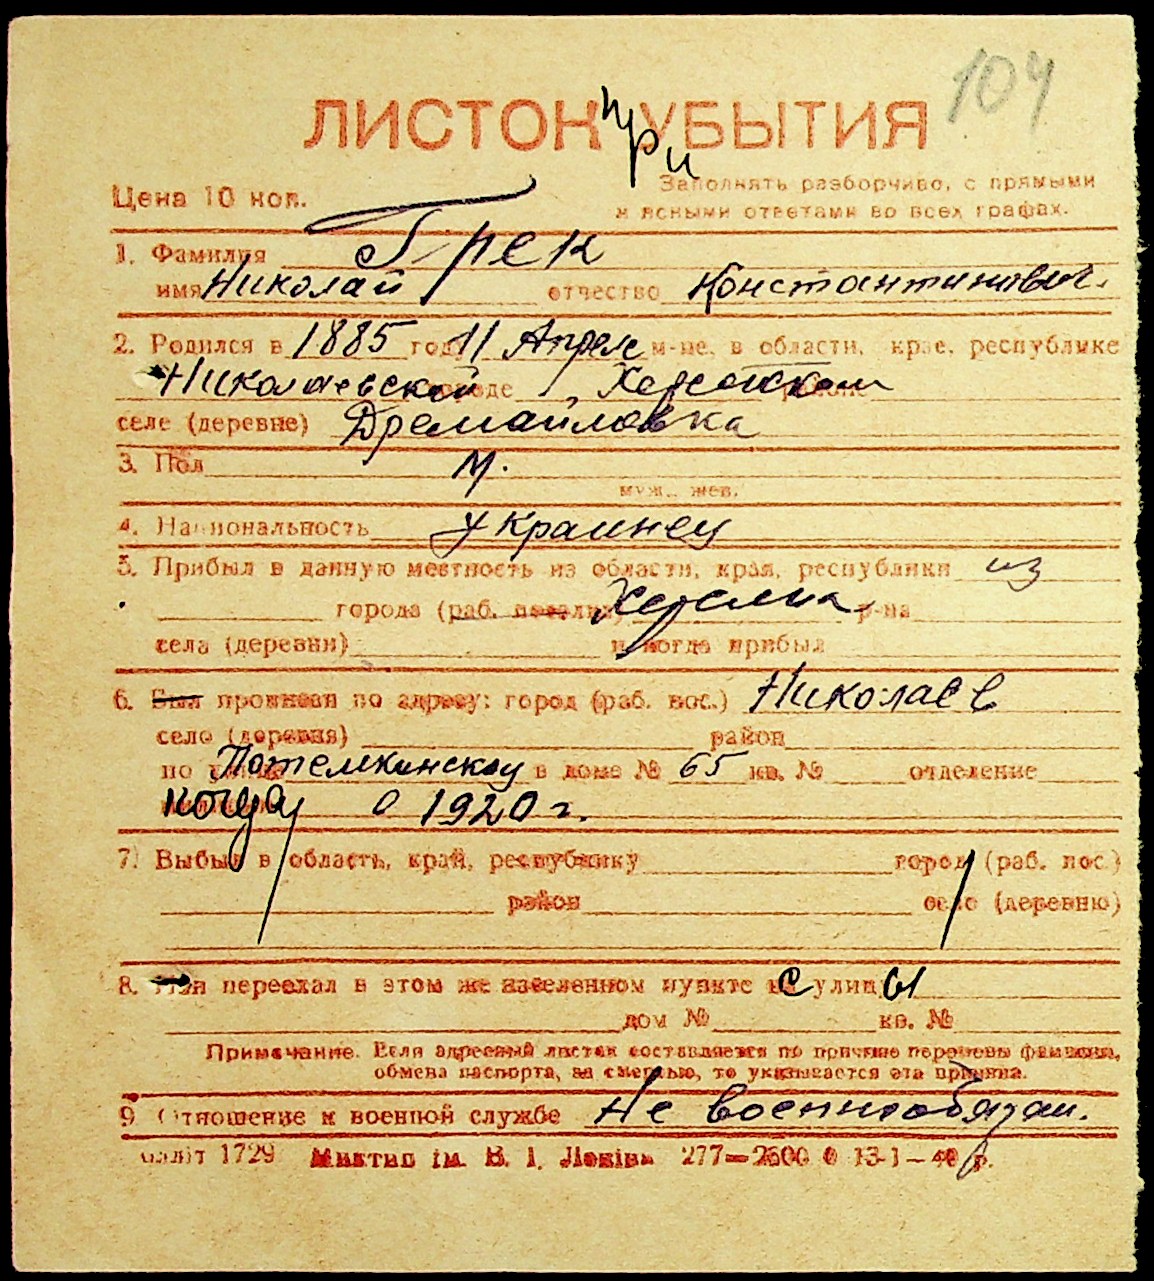 104
ЛИСТОК при УБЫТИЯ
Цена 10 коп.
Заполнять разборчиво, с прямыми
и ясными ответами во всех графах.
1. Фамилия Грек
имя Николай отчество Константинович.
2. Родился в 1885 году 11 Апреле м-це, в области, крае, республике
Николаевской городе Херсонском районе
селе (деревне) Дремайловка
3. Пол М.
муж., жен.
4. Национальность украинец
5. Прибыл в данную местность из области, края, республики из
города (раб. поселка) р-на
села (деревни) и когда прибыл
6. Был проживал по адресу: город (раб. пос.) Николаев
село (деревня) район
по улице Потемкинскау в доме № 65 кв. № отделение
когда с 1920 г.
7. Выбыл в область, край, республику город (раб. пос.)
район село (деревню)
8. Или переехал в этом же населенном пункте с улицы
дом № кв. №
Примечание. Если адресный листок составляется по причине перемены фамилии,
обмена паспорта, за смертью, то указывается эта причина.
9. Отношение к военной службе Не военнообязан.
1729 ім. В. І. Леніна 277—2600 0 13-1—40 р.